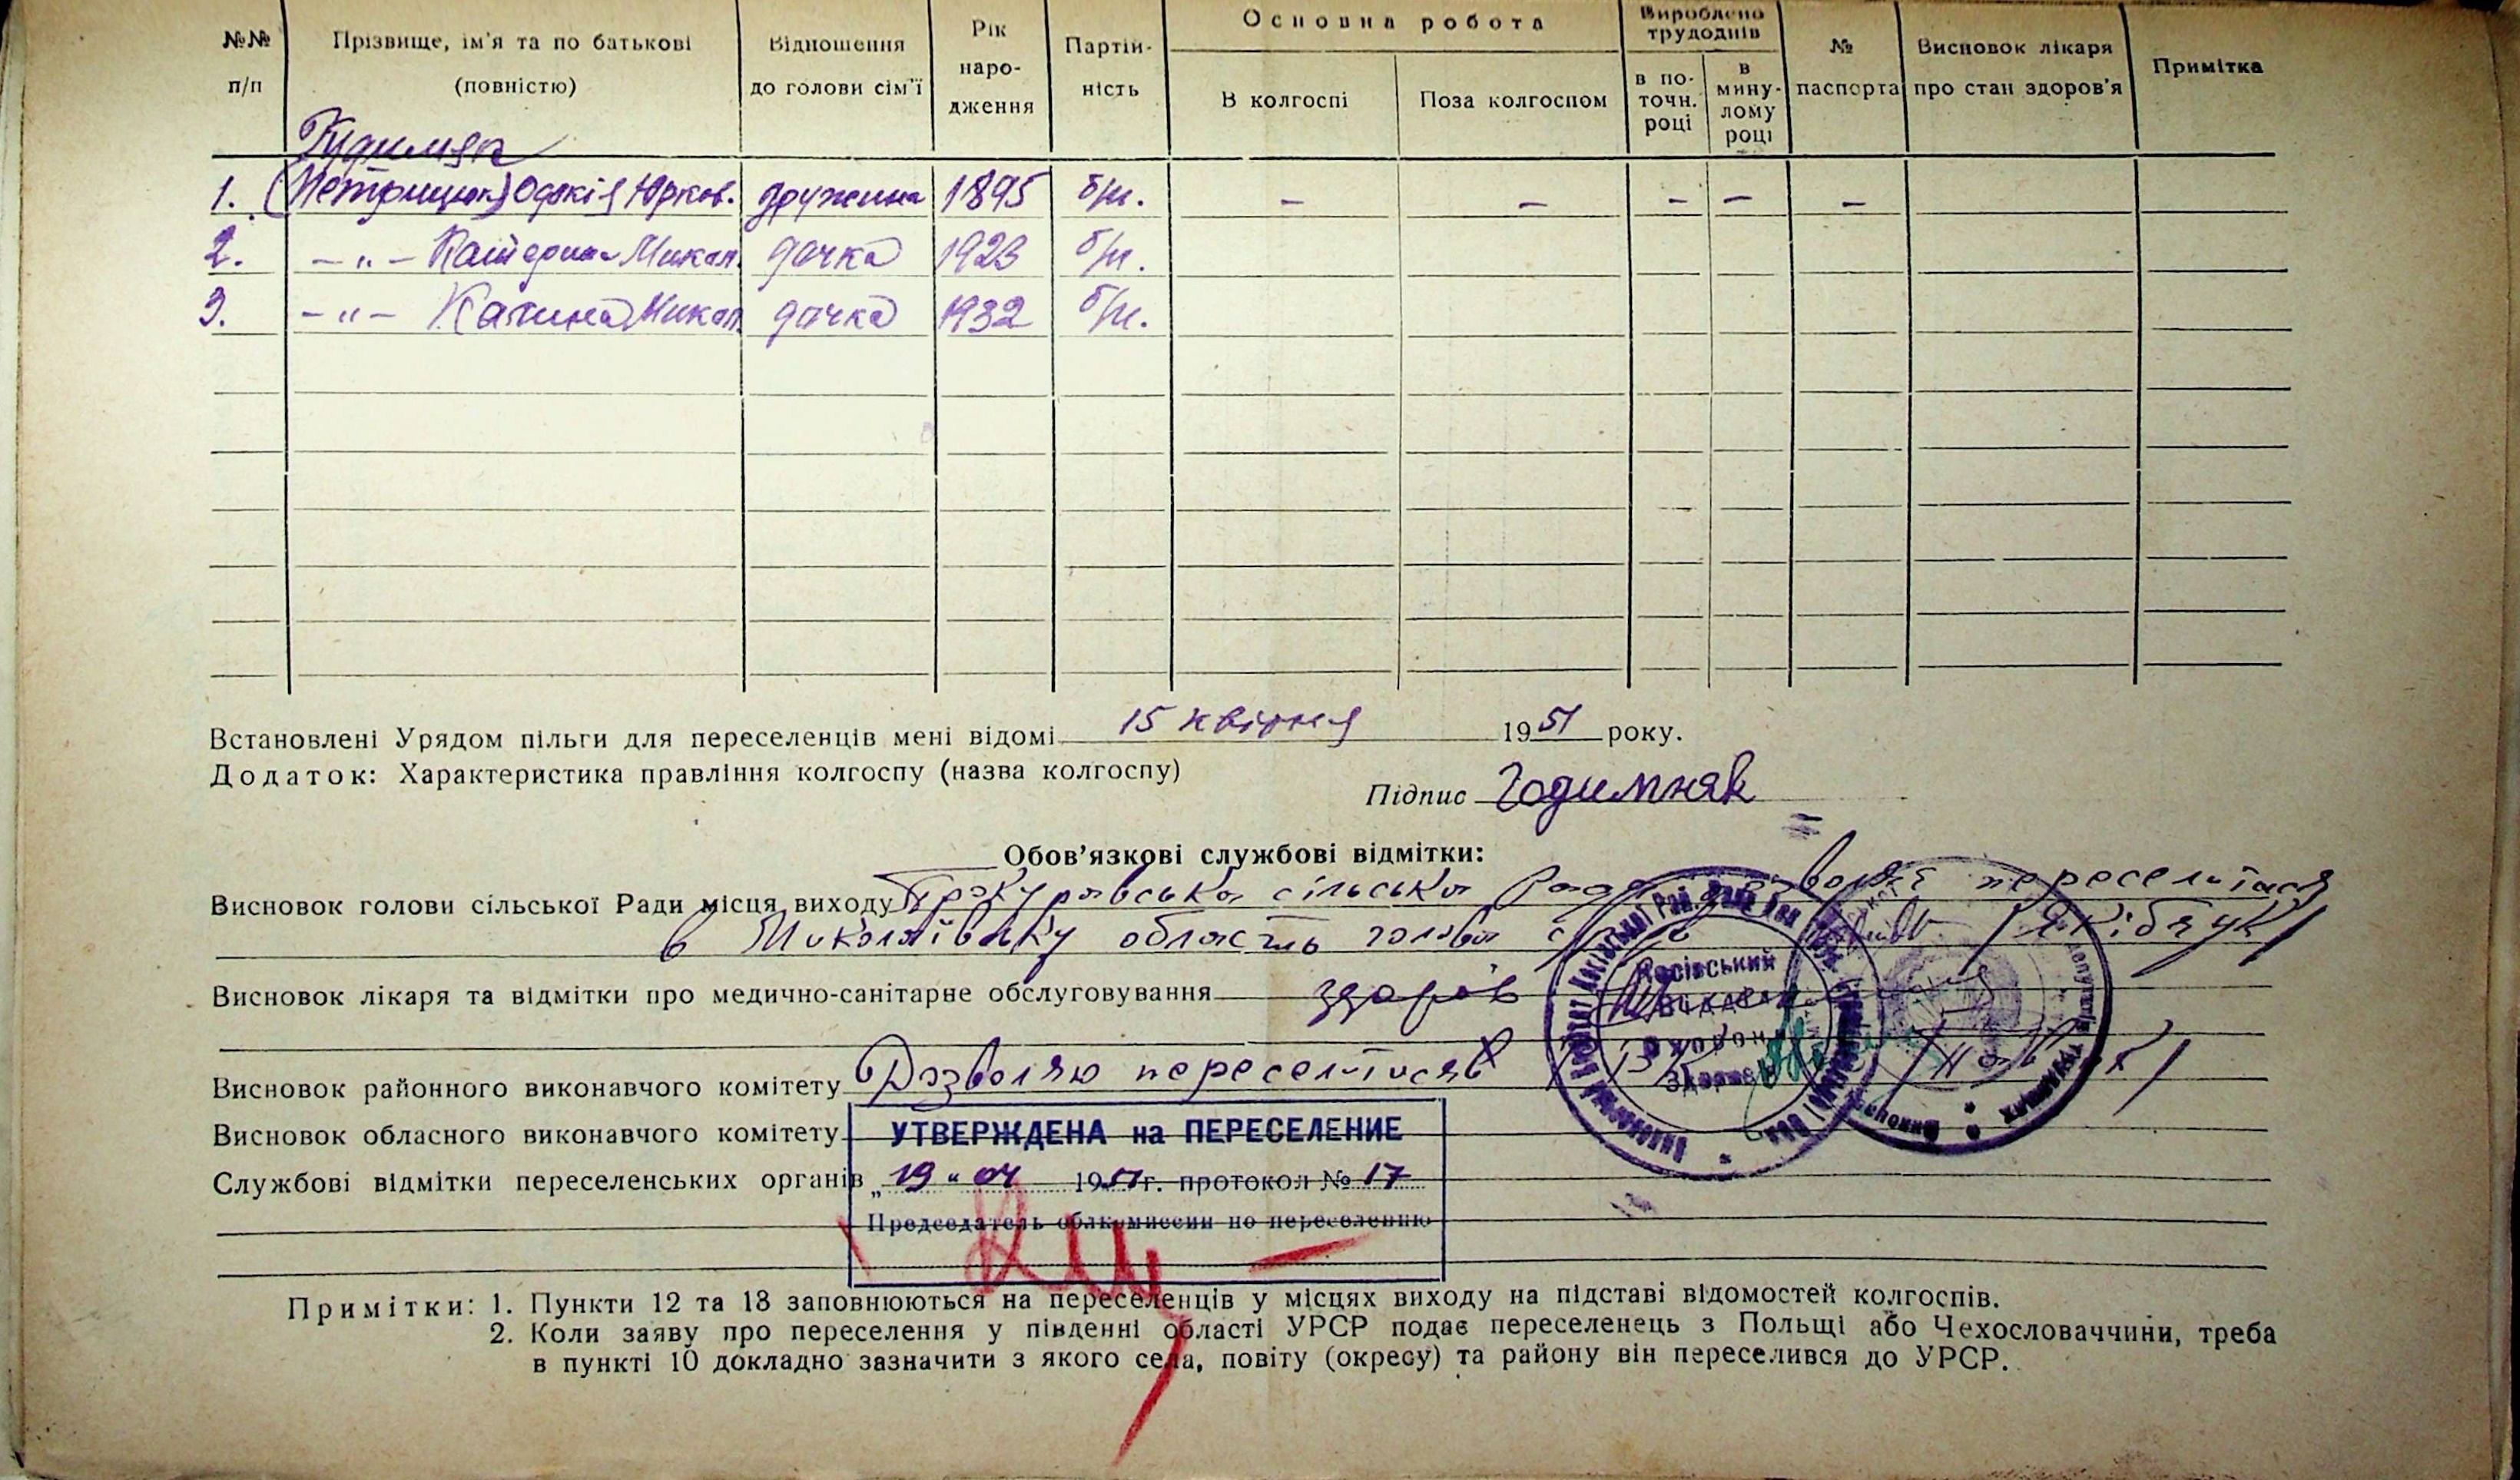 №№ п/п
Прізвище, ім'я та по батькові (повністю)
Відношення до голови сім'ї
Рік народження
Партійність
Основна робота
В колгоспі
Поза колгоспом
Вироблено трудоднів
в поточн. році
в минулому році
№ паспорта
Висновок лікаря про стан здоров'я
Примітка
1. (Петрицюк) Юрков. дружина 1895 б/п. – – – – –
2. –„– Катерина Микол. дочка 1923 б/п.
3. –„– Калина Микол. дочка 1932 б/п.
Встановлені Урядом пільги для переселенців мені відомі 15 квітня 1951 року.
Додаток: Характеристика правління колгоспу (назва колгоспу)
Підпис Годимняк
Обов'язкові службові відмітки:
Висновок голови сільської Ради місця виходу Прокуравська сільська Рада дозволяє переселитися
в Миколаївську область голова с/р /Якібчук/
Висновок лікаря та відмітки про медично-санітарне обслуговування здорів
Висновок районного виконавчого комітету Дозволяю переселитися
Висновок обласного виконавчого комітету
УТВЕРЖДЕНА на ПЕРЕСЕЛЕНИЕ
Службові відмітки переселенських органів
„19" 04 1951 г. протокол № 17
Председатель облкомиссии по переселению
Косівський
відділ
охорони
здоров'я
Примітки: 1. Пункти 12 та 13 заповнюються на переселенців у місцях виходу на підставі відомостей колгоспів.
2. Коли заяву про переселення у південні області УРСР подає переселенець з Польщі або Чехословаччини, треба
в пункті 10 докладно зазначити з якого села, повіту (окресу) та району він переселився до УРСР.